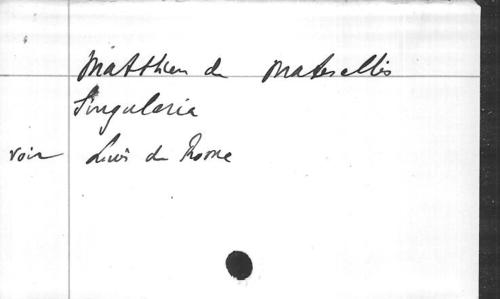 Matthieu de Mateselles
Singularia
voir Louis de Rome